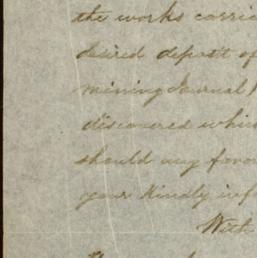 the works carri
desired deposit of
mining Journal
discovered whic
should any favor
your kindly inf
With